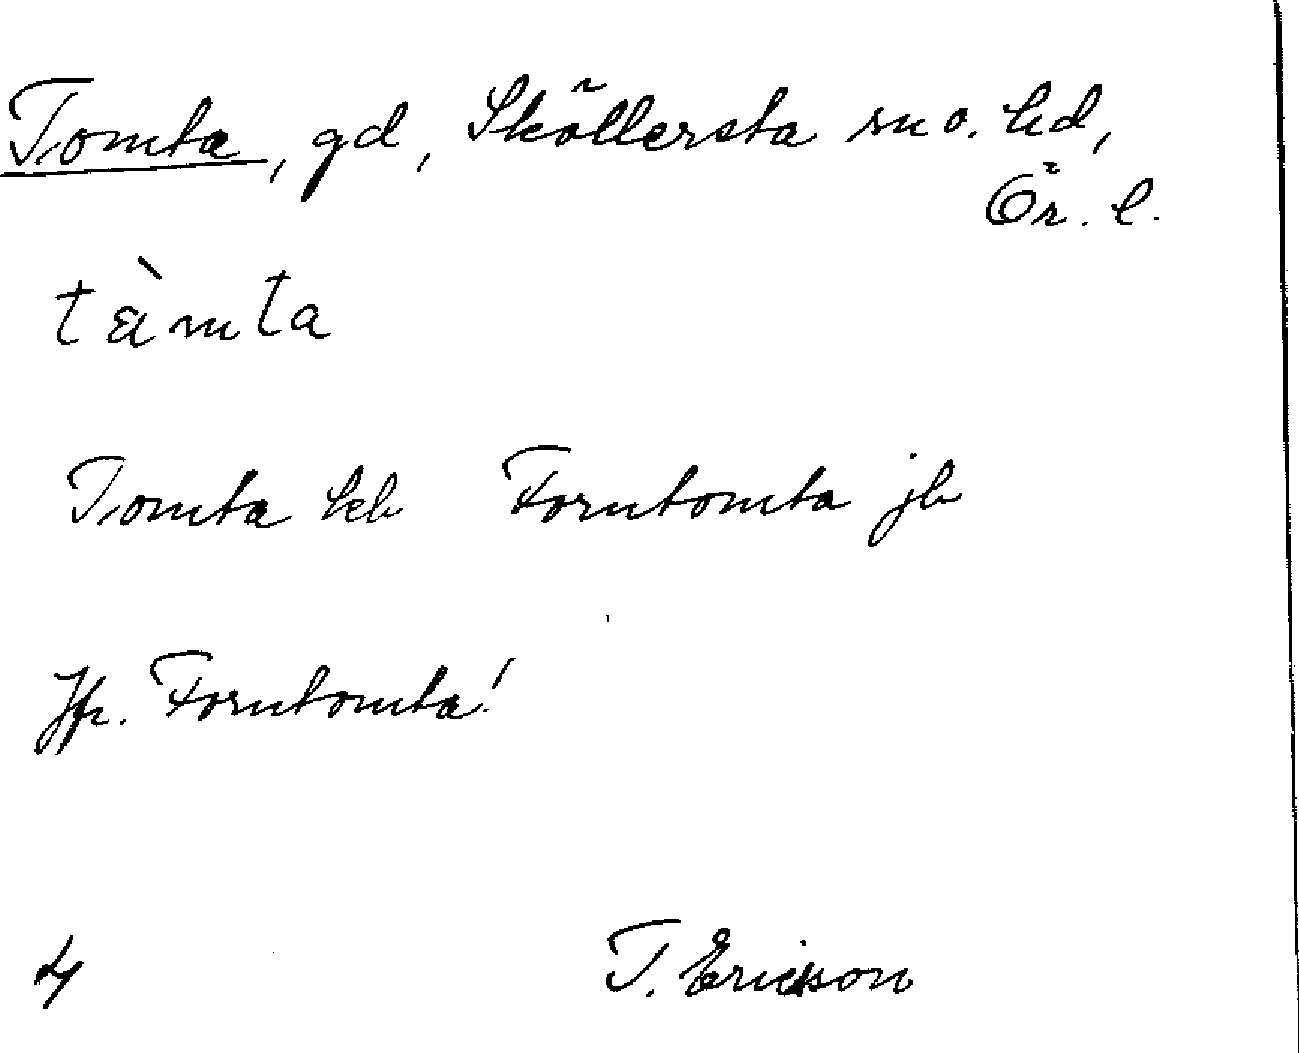 Tomta, gd, Sköllersta sn o. hd,
Ör. l.
tàmta
Tomta kb Forntomta jb
Jfr. Forntomta!
4 T. Ericsson